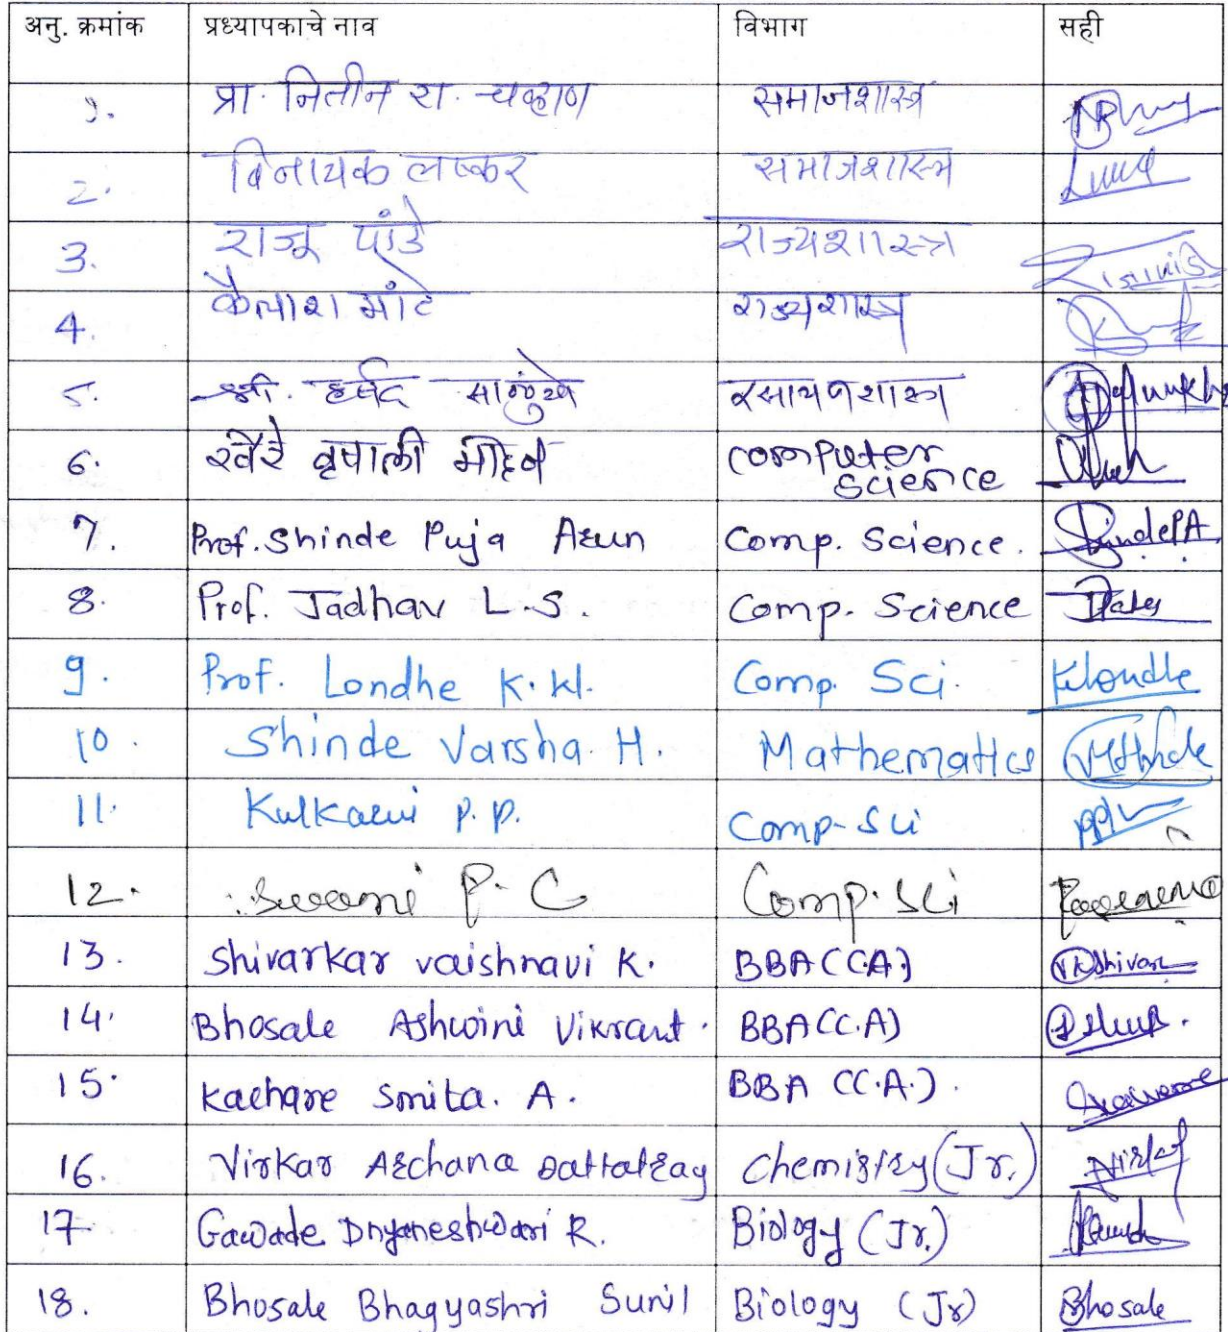 अनु. क्रमांक प्रध्यापकाचे नाव विभाग सही
१. प्रा. नितीन रा. चव्हाण समाजशास्त्र
2. विनायक लष्कर समाजशास्त्र
3. राजू पांडे राज्यशास्त्र
4. कैलाश मांटे राज्यशास्त्र
5. श्री. हर्षद साळुंखे रसायणशास्त्र
6. खैरे वृषाली मोहन computer
science
7. Prof. Shinde Puja Arun Comp. Science. ShindePA
8. Prof. Jadhav L.S. Comp. Science
9. Prof. Londhe K. Comp. Sci. Klondhe
10. Shinde Varsha. H. Mathematics
11. Kulkarni P.P. Comp-Sci
12. Swami P. C Comp. Sci
13. Shivarkar vaishnavi K. BBA(C.A.)
14. Bhosale Ashwini Vikrant. BBA(C.A)
15. Kachare Smita. A. BBA (C.A.).
16. Virkar Archana Dattatray Chemistry (Jr.)
17. Gawade Dnyaneshwari R. Biology (Jr.)
18. Bhosale Bhagyashri Sunil Biology (Jr) Bhosale